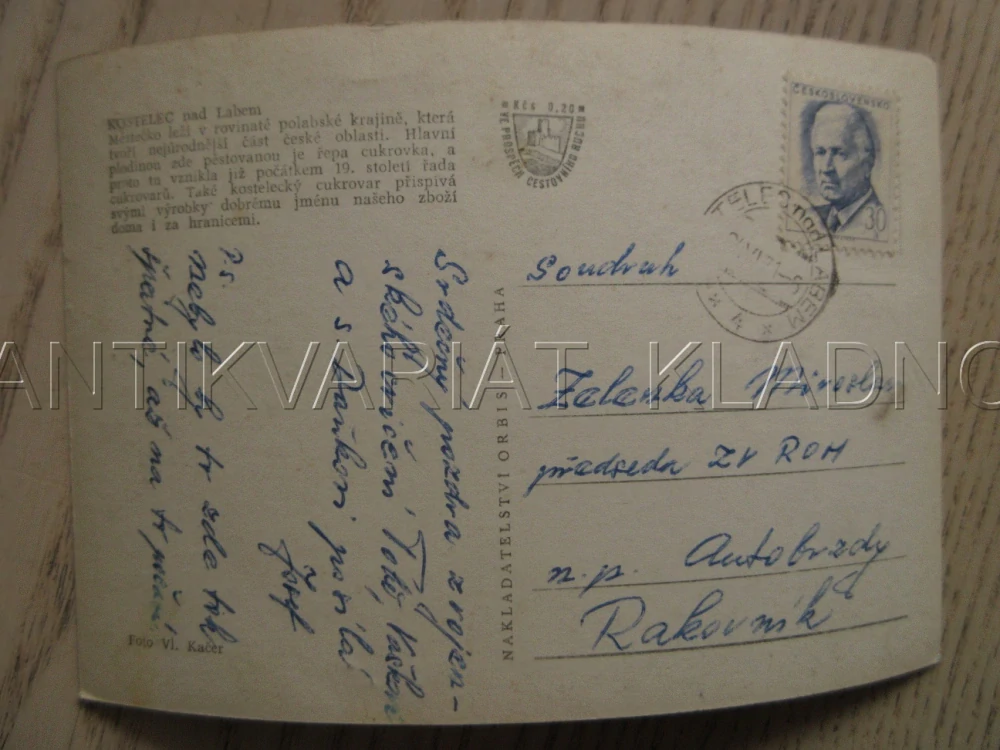 KOSTELEC nad Labem
Městečko leží v rovinaté polabské krajině, která
tvoří nejúrodnější část české oblasti. Hlavní
plodinou zde pěstovanou je řepa cukrovka, a
proto tu vznikla již počátkem 19. století řada
cukrovarů. Také kostelecký cukrovar přispívá
svými výrobky dobrému jménu našeho zboží
doma i za hranicemi.
Kčs 0,20
VE PROSPĚCH CESTOVNÍHO RUCHU
ČESKOSLOVENSKO
30
TELEC nad LABEM
4
Srdečný pozdrav z vojen-
ského cvičení Tobě, Vaškovi
a s Daňkovi posílá
Josef
P.S.
nebylo by to zde tak
špatné, až na to
Foto Vl. Kačer
NAKLADATELSTVÍ ORBIS PRAHA
Soudruh
Zelenka Miroslav
předseda ZV ROH
n.p. Autobrzdy
Rakovník
ANTIKVARIÁT KLADNO